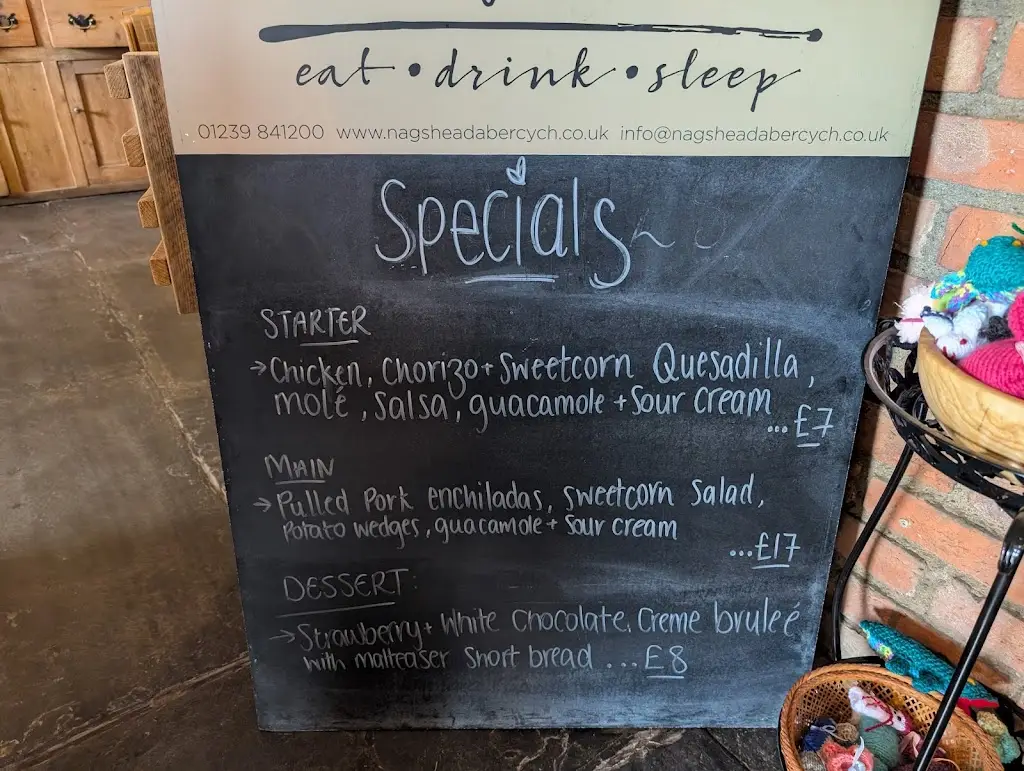 eat • drink • sleep
01239 841200 www.nagsheadabercych.co.uk info@nagsheadabercych.co.uk
Specials
STARTER
→ Chicken, Chorizo + Sweetcorn Quesadilla,
molé, salsa, guacamole + Sour cream
... £7
MAIN
→ Pulled Pork enchiladas, sweetcorn Salad,
Potato wedges, guacamole + Sour cream
...£17
DESSERT:
→ Strawberry + White Chocolate Creme bruleé
with malteaser Short bread ... £8